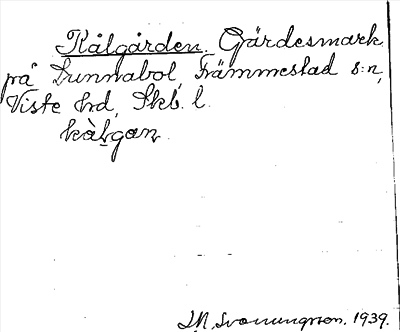 Kålgården. Gärdesmark
på Sunnabol, Främmestad s:n,
Viste hd, Skb. l.
kàlgan
J.N. Svanungsson. 1939.